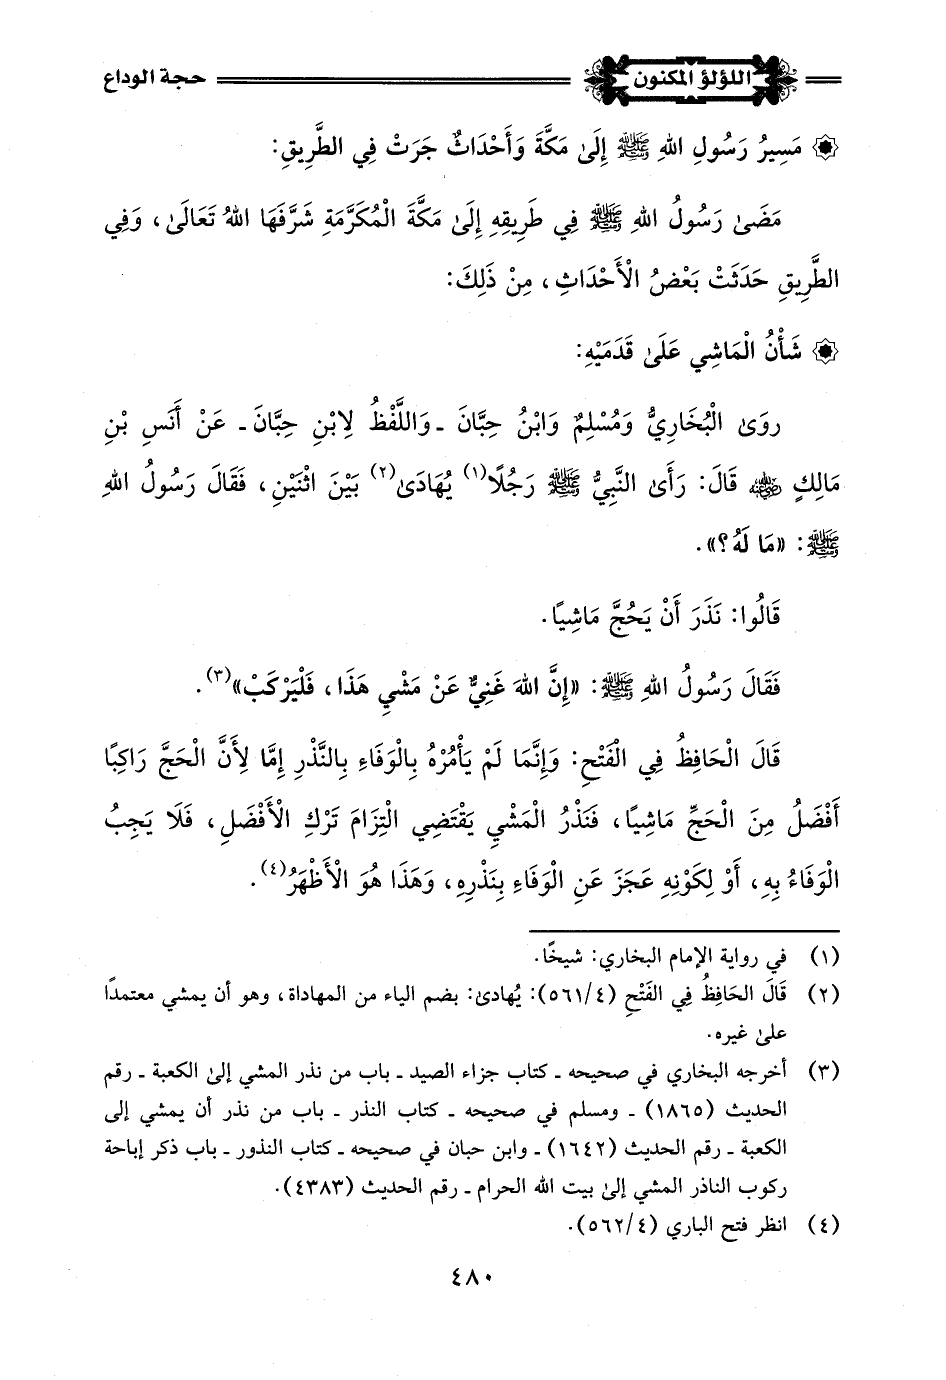 اللؤلؤ المكنون حجة الوداع
۞ مَسِيرُ رَسُولِ اللهِ ﷺ إِلَىٰ مَكَّةَ وَأَحْدَاثٌ جَرَتْ فِي الطَّرِيقِ:
مَضَىٰ رَسُولُ اللهِ ﷺ فِي طَرِيقِهِ إِلَىٰ مَكَّةَ الْمُكَرَّمَةِ شَرَّفَهَا اللهُ تَعَالَىٰ، وَفِي
الطَّرِيقِ حَدَثَتْ بَعْضُ الْأَحْدَاثِ، مِنْ ذَلِكَ:
۞ شَأْنُ الْمَاشِي عَلَىٰ قَدَمَيْهِ:
روَىٰ الْبُخَارِيُّ وَمُسْلِمٌ وَابْنُ حِبَّانَ ـ وَاللَّفْظُ لِابْنِ حِبَّانَ ـ عَنْ أَنَسِ بْنِ
مَالِكٍ ﵁ قَالَ: رَأَىٰ النَّبِيُّ ﷺ رَجُلًا(١) يُهَادَىٰ(٢) بَيْنَ اثْنَيْنِ، فَقَالَ رَسُولُ اللهِ
ﷺ: «مَا لَهُ؟».
قَالُوا: نَذَرَ أَنْ يَحُجَّ مَاشِيًا.
فَقَالَ رَسُولُ اللهِ ﷺ: «إِنَّ اللهَ غَنِيٌّ عَنْ مَشْيِ هَذَا، فَلْيَرْكَبْ»(٣).
قَالَ الْحَافِظُ فِي الْفَتْحِ: وَإِنَّمَا لَمْ يَأْمُرْهُ بِالْوَفَاءِ بِالنَّذْرِ إِمَّا لِأَنَّ الْحَجَّ رَاكِبًا
أَفْضَلُ مِنَ الْحَجِّ مَاشِيًا، فَنَذْرُ الْمَشْيِ يَقْتَضِي الْتِزَامَ تَرْكِ الْأَفْضَلِ، فَلَا يَجِبُ
الْوَفَاءُ بِهِ، أَوْ لِكَوْنِهِ عَجَزَ عَنِ الْوَفَاءِ بِنَذْرِهِ، وَهَذَا هُوَ الْأَظْهَرُ(٤).
(١) في رواية الإمام البخاري: شيخًا.
(٢) قَالَ الحَافِظُ فِي الفَتْحِ (٥٦١/٤): يُهادىٰ: بضم الياء من المهاداة، وهو أن يمشي معتمدًا
علىٰ غيره.
(٣) أخرجه البخاري في صحيحه ـ كتاب جزاء الصيد ـ باب من نذر المشي إلىٰ الكعبة ـ رقم
الحديث (١٨٦٥) ـ ومسلم في صحيحه ـ كتاب النذر ـ باب من نذر أن يمشي إلى
الكعبة ـ رقم الحديث (١٦٤٢) ـ وابن حبان في صحيحه ـ كتاب النذور ـ باب ذكر إباحة
ركوب الناذر المشي إلىٰ بيت الله الحرام ـ رقم الحديث (٤٣٨٣).
(٤) انظر فتح الباري (٥٦٢/٤).
٤٨٠